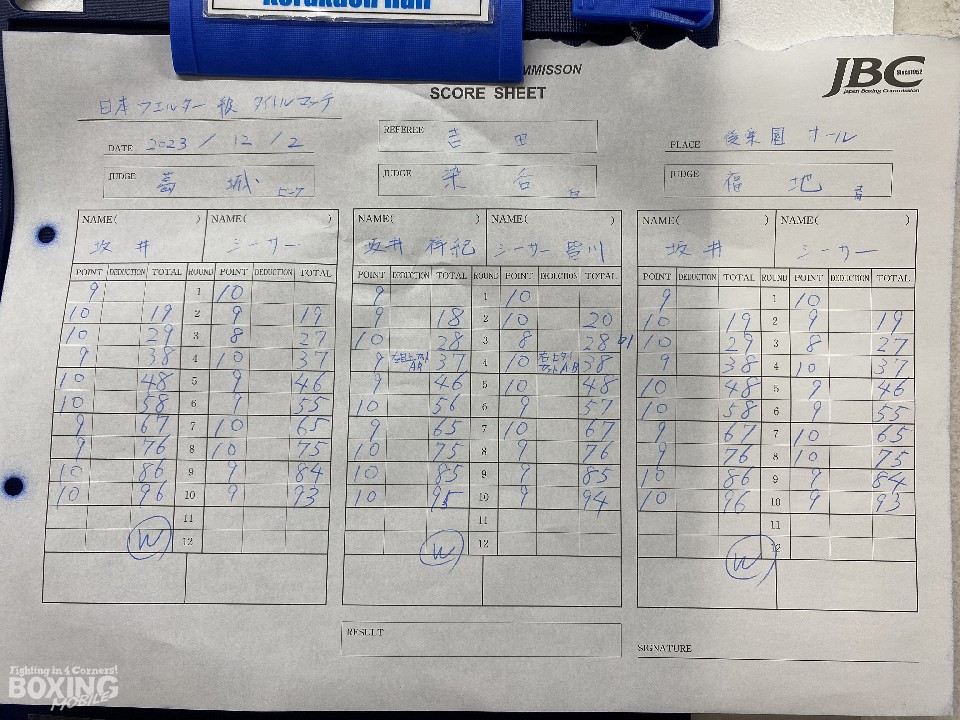 Korakuen Hall
MMISSON
SCORE SHEET
JBC Since1952
Japan Boxing Commission
日本 ウエルター 級 タイトルマッチ
DATE 2023 / 12 / 2
REFEREE 吉 田
PLACE 後楽園 ホール
JUDGE 葛 城
JUDGE 染 谷
JUDGE 福 地
NAME( ) NAME( ) NAME( ) NAME( ) NAME( ) NAME( )
坂 井 シーサー 坂井 祥紀 シーサー 皆川 坂 井 シーサー
POINT DEDUCTION TOTAL ROUND POINT DEDUCTION TOTAL POINT DEDUCTION TOTAL ROUND POINT DEDUCTION TOTAL POINT DEDUCTION TOTAL ROUND POINT DEDUCTION TOTAL
9 1 10 9 1 10 9 1 10
10 19 2 9 19 9 18 2 10 20 10 19 2 9 19
10 29 3 8 27 10 28 3 8 28 10 29 3 8 27
9 38 4 10 37 9 37 4 10 38 9 38 4 10 37
10 48 5 9 46 9 46 5 10 48 10 48 5 9 46
10 58 6 9 55 10 56 6 9 57 10 58 6 9 55
9 67 7 10 65 9 65 7 10 67 9 67 7 10 65
9 76 8 10 75 10 75 8 9 76 9 76 8 10 75
10 86 9 9 84 10 85 9 9 85 10 86 9 9 84
10 96 10 9 93 10 95 10 9 94 10 96 10 9 93
11 11 11
W 12 W 12 W 12
RESULT
SIGNATURE
Fighting in 4 Corners!
BOXING
MOBILE